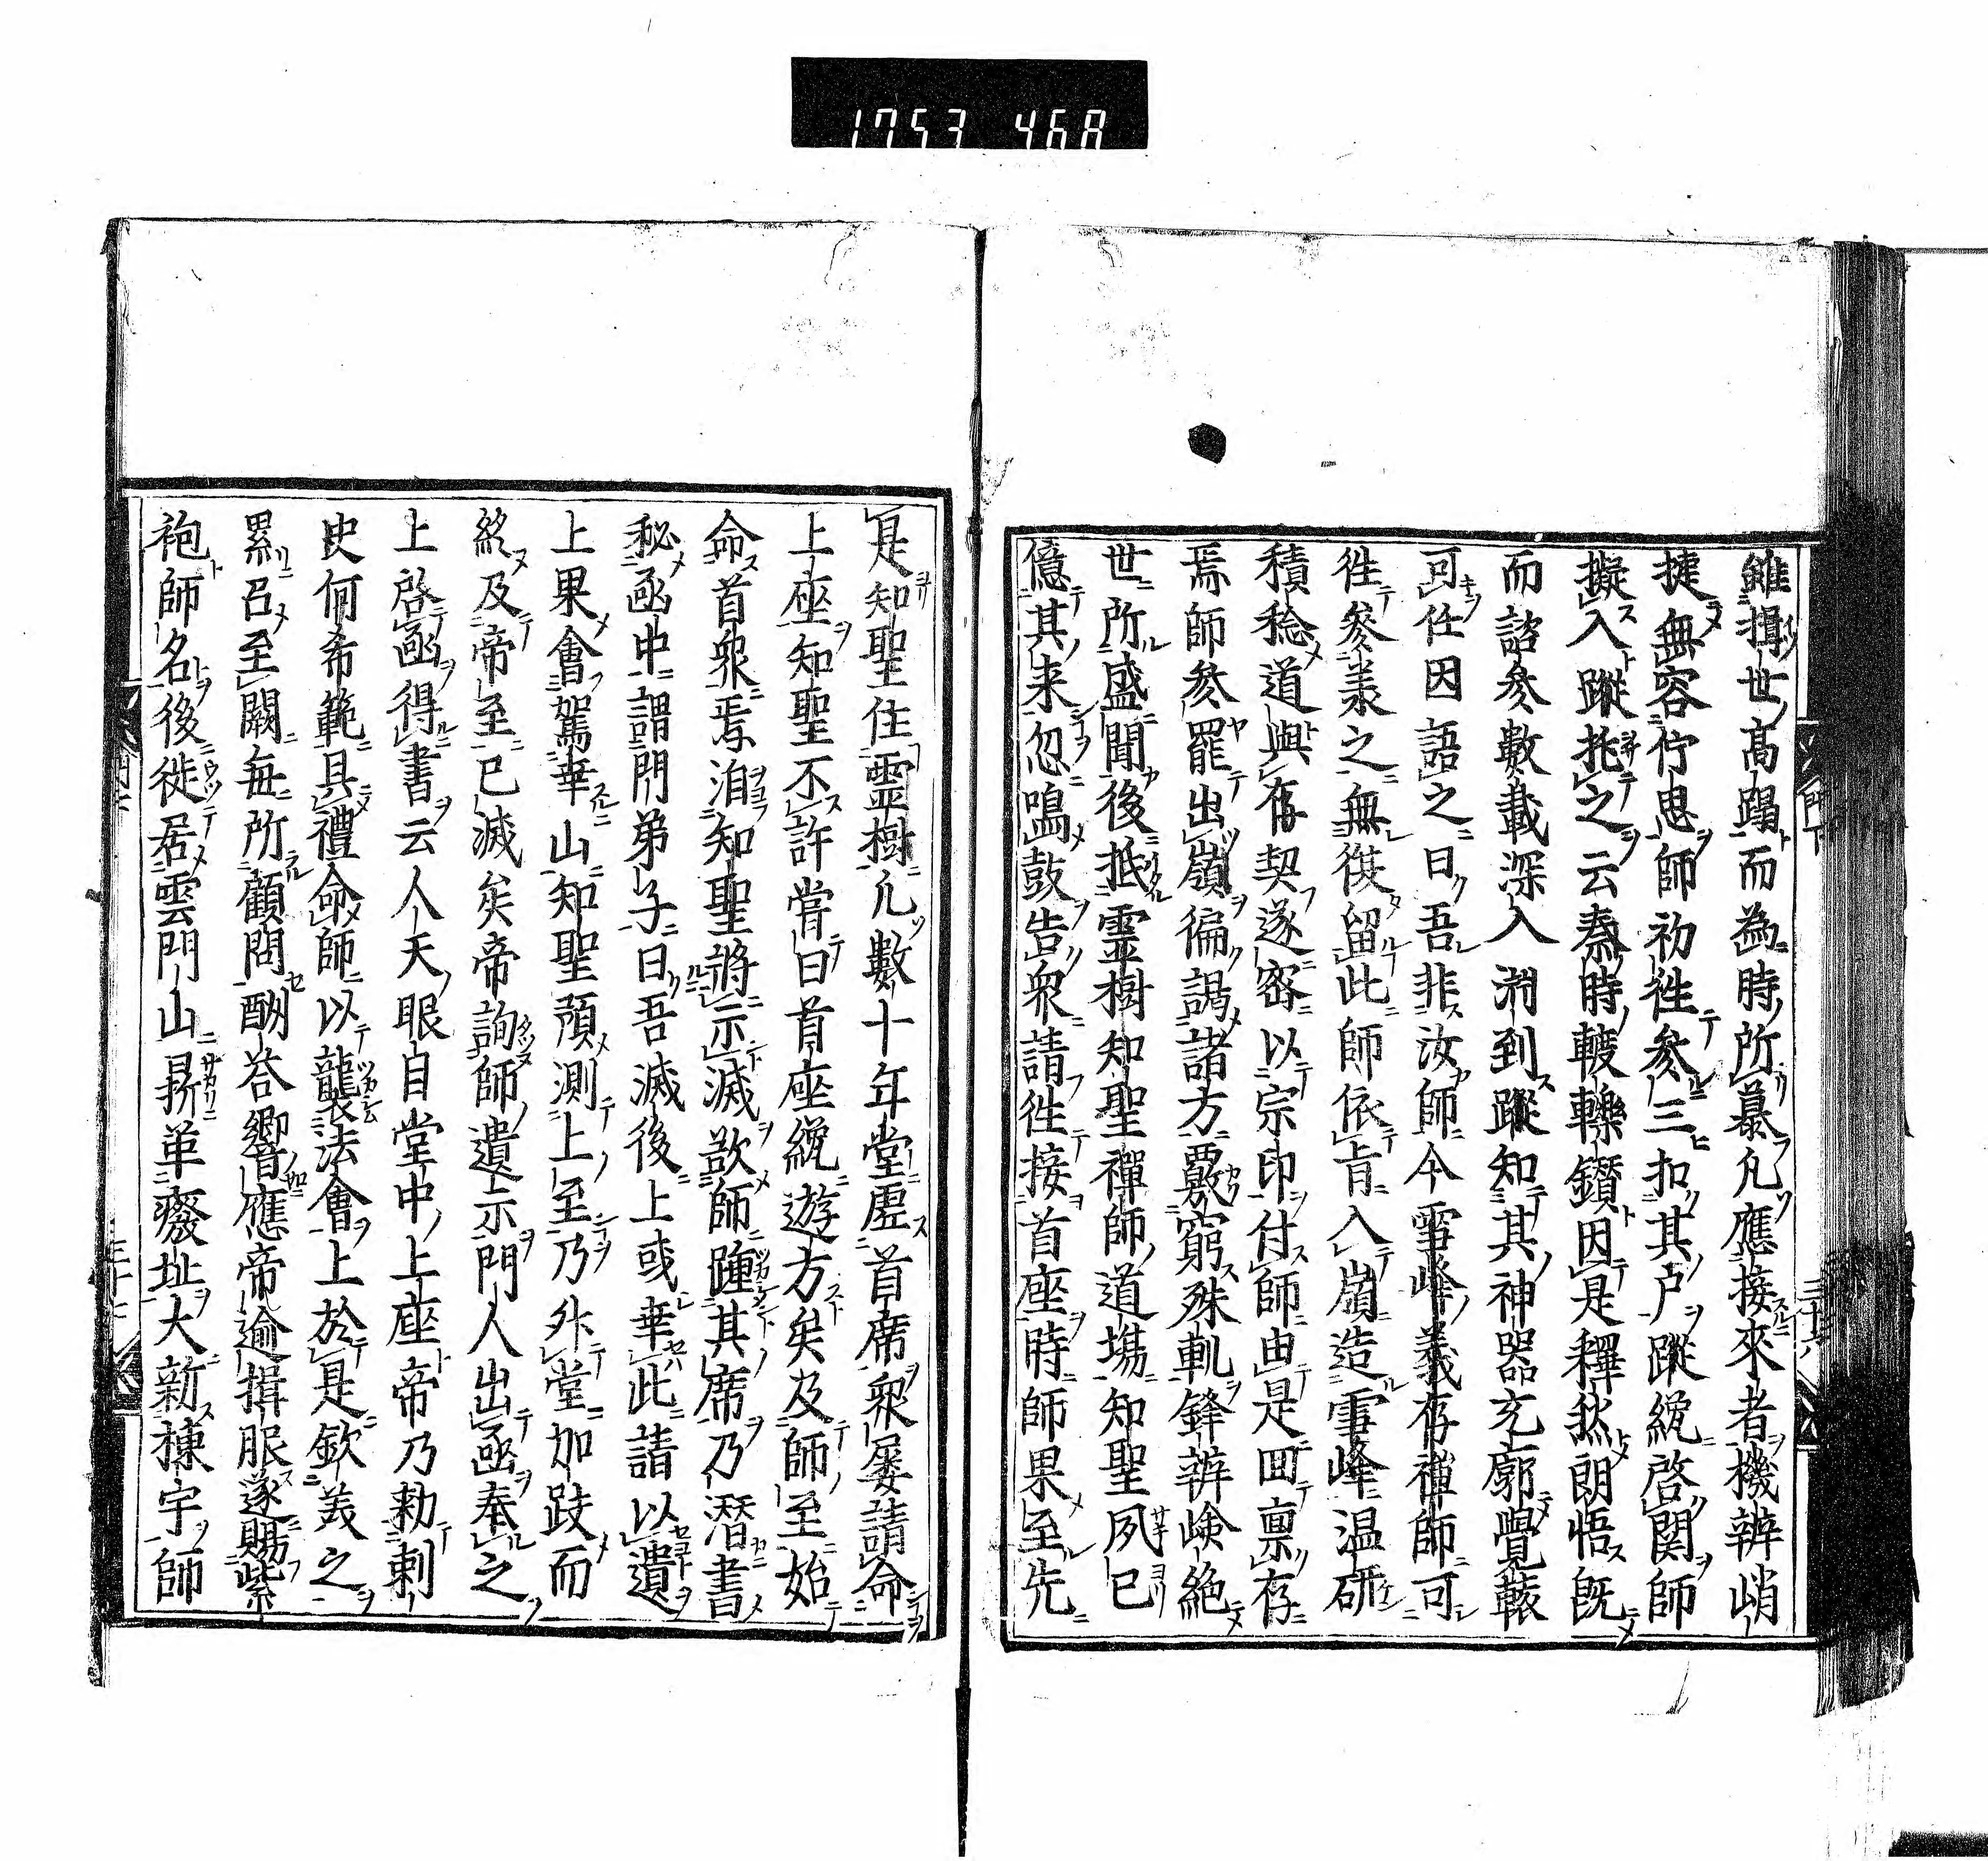 1753 46A
雖揖世高蹋而為時所慕凡應接來者機辨峭
捷無容佇思師初徃參三扣其戸蹤纔啓関師
擬入蹤托之云秦時𨍏轢鑽因是釋然朗悟既
而諮參數載深入渊到蹤知其神器充廓覺轅
可任因語之曰吾非汝師今雪峰義存禅師可
徃參羕之無復留此師依旨入嶺造雪峰温研
積稔道與存契遂密以宗印付師由是回禀存
焉師參罷出嶺徧謁諸方覈窮殊軌鋒辨崄絶
世所盛聞後抵靈樹知聖禪師道場知聖夙已
億其来忽鳴鼓告衆請徃接首座時師果至先
是知聖住靈樹凢數十年堂虚首席衆屡請命
上座知聖不許嘗曰首座纔遊方矣及師至始
命首衆焉洎知聖將示滅欲師踵其席乃潜書
秘凾中謂門弟子曰吾滅後上或幸此請以遺
上果會駕幸山知聖預測上至乃外堂加跂而
終及帝至已滅矣帝詢師遺示門人出凾奉之
上啓凾得書云人天眼目堂中上座帝乃勅剌
史何希範具禮命師以襲法會上於是欽羙之
累召至闕毎所顧問酬荅響應帝逾揖服遂賜紫
袍師名後徙居雲門山㫷革癈址大新棟宇師